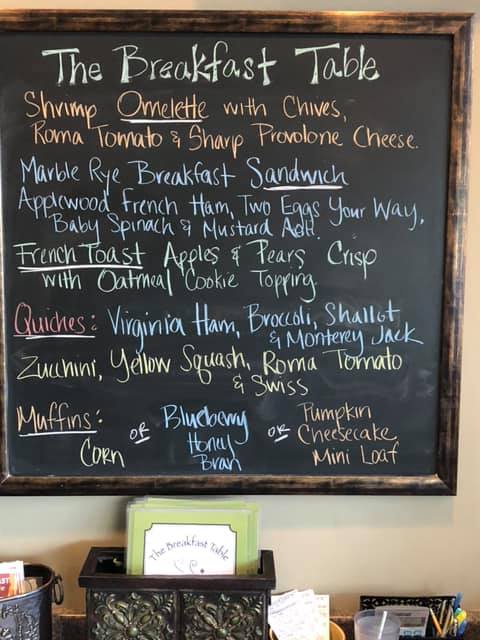 The Breakfast Table
Shrimp Omelette with Chives,
Roma Tomato & Sharp Provolone Cheese.
Marble Rye Breakfast Sandwich
Applewood French Ham, Two Eggs Your Way,
Baby Spinach & Mustard Aoli.
French Toast Apples & Pears Crisp
with Oatmeal Cookie Topping.
Quiches: Virginia Ham, Broccoli, Shallot
& Monterey Jack
Zucchini, Yellow Squash, Roma Tomato
& Swiss
Muffins:
Corn
OR
Blueberry
Honey
Bran
OR
Pumpkin
Cheesecake
Mini Loaf
The Breakfast Table